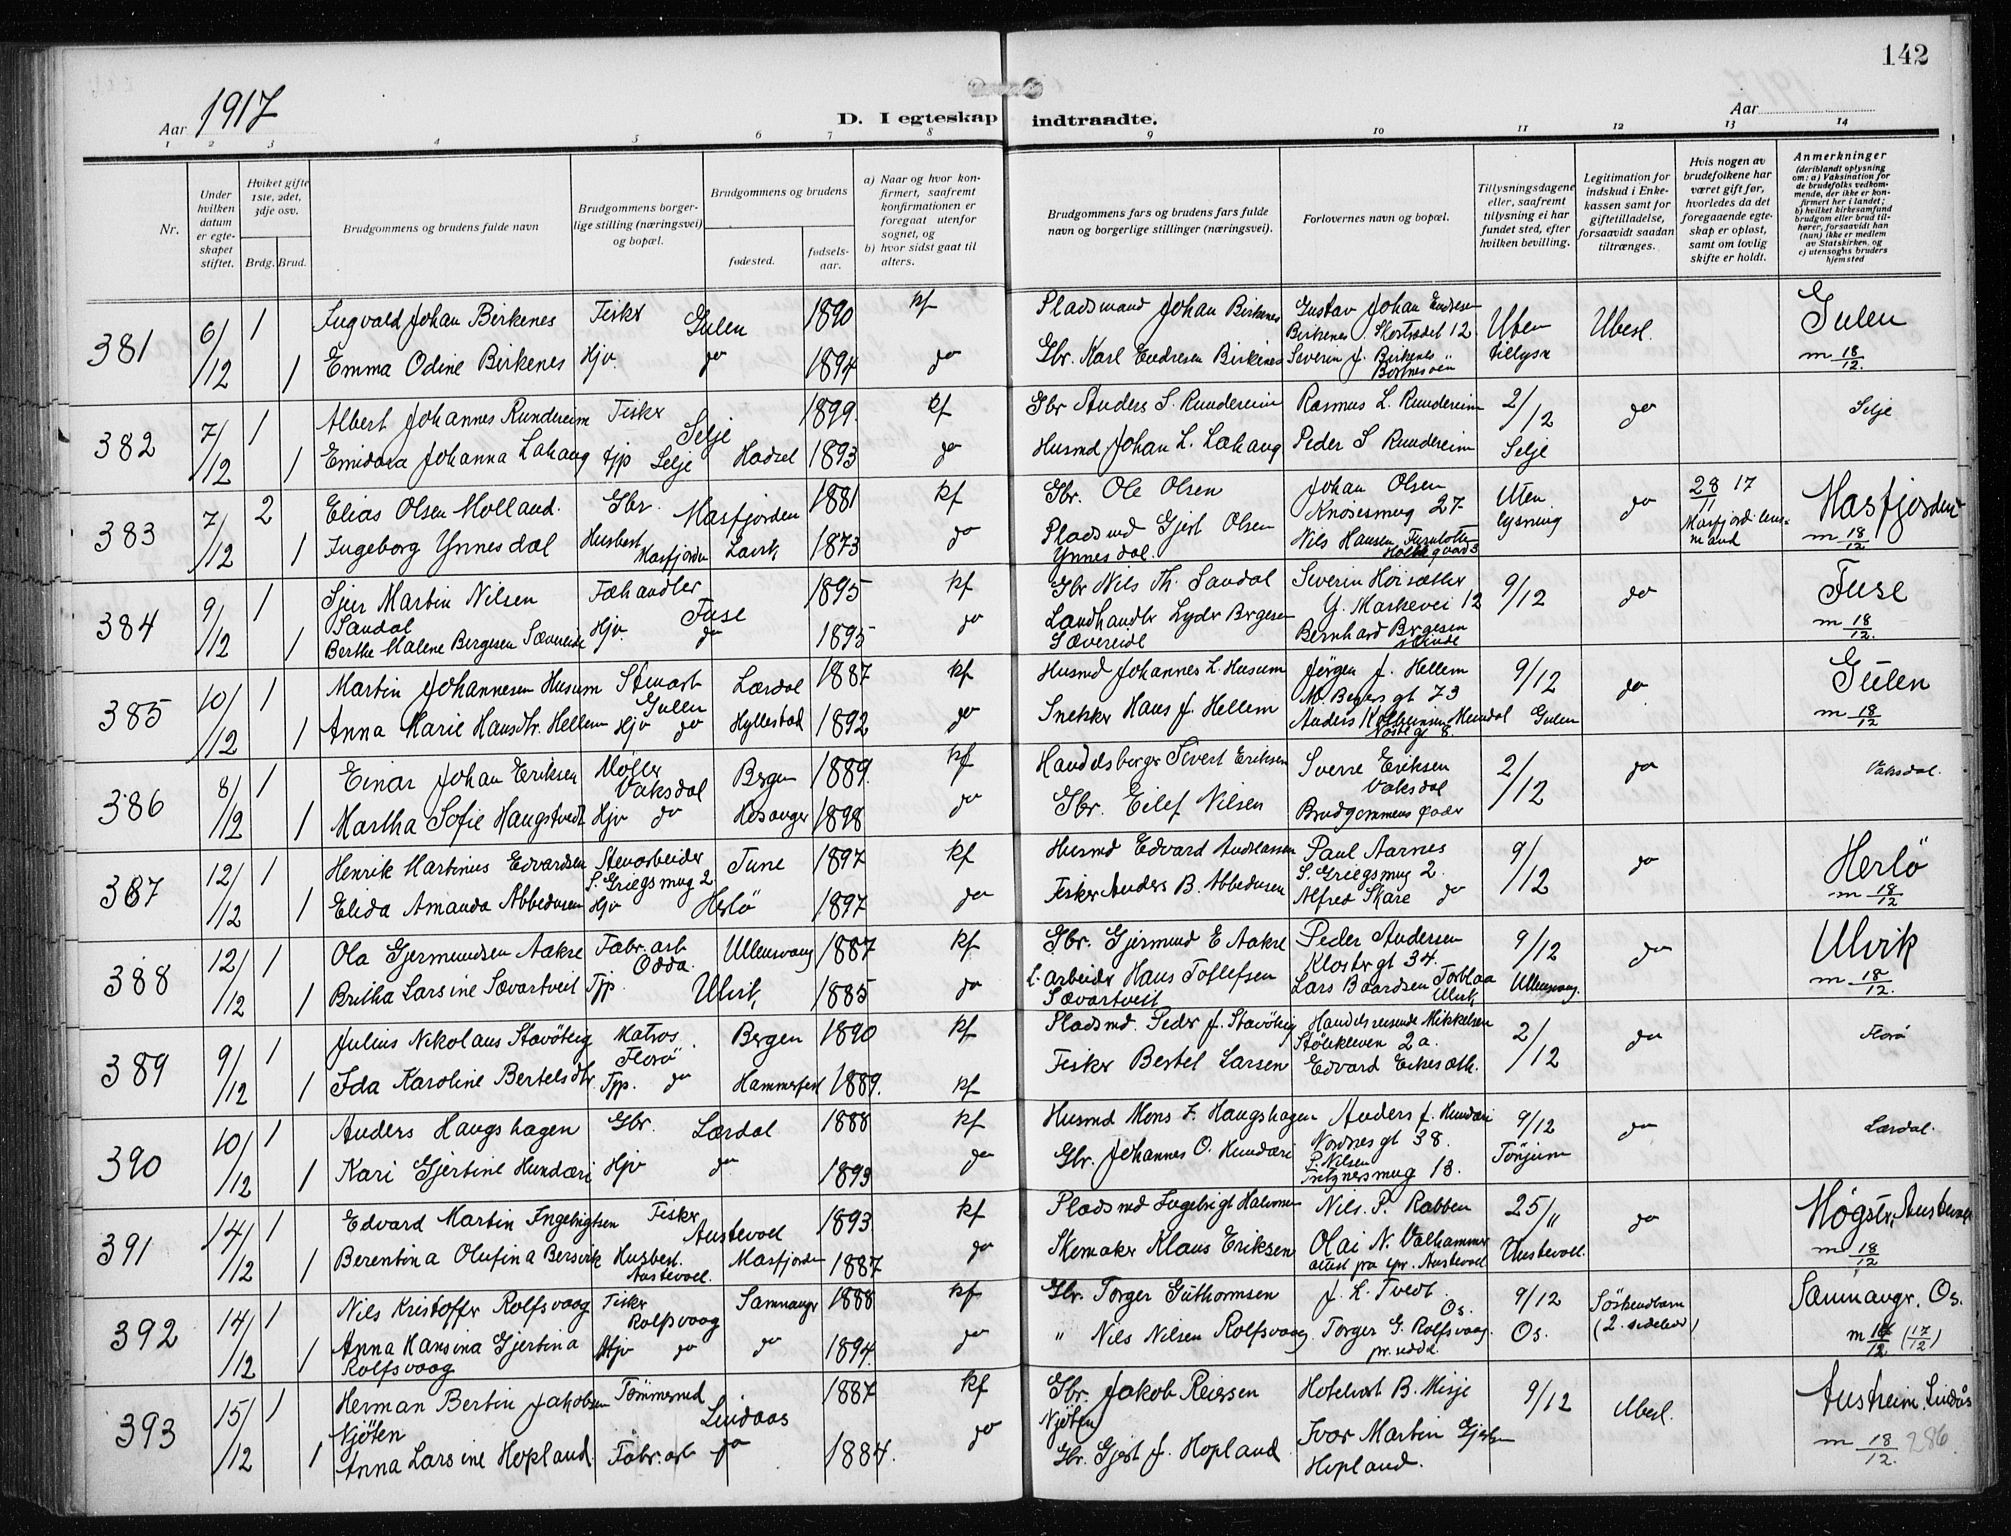 142
Aar 1917
D. I egteskap indtraadte.
Aar
1 2 3 4 5 6 7 8 9 10 11 12 13 14
Nr.
Under hvilken datum er egteskapet stiftet.
Hviket gifte 1ste, 2det, 3dje osv.
Brdg. Brud.
Brudgommens og brudens fulde navn
Brudgommens borgerlige stilling (næringsvei) og bopæl.
Brudgommens og brudens
fødested.
fødselsaar.
a) Naar og hvor konfirmert, saafremt konfirmationen er foregaat utenfor sognet, og
b) hvor sidst gaat til alters.
Brudgommens fars og brudens fars fulde navn og borgerlige stillinger (næringsvei).
Forlovernes navn og bopæl.
Tillysningsdagene eller, saafremt tillysning ei har fundet sted, efter hvilken bevilling.
Legitimation for indskud i Enkekassen samt for giftetilladelse, forsaavidt saadan tiltrænges.
Hvis nogen av brudefolkene har været gift før, hvorledes da det foregaaende egteskap er opløst, samt om lovlig skifte er holdt.
Anmerkninger
(deriblandt oplysning om: a) Vaksination for de brudefolks vedkommende, der ikke er konfirmert her i landet; b) hvilket kirkesamfund brudgom eller brud tilhører, forsaavidt han (hun) ikke er medlem av Statskirken, og c) utensogns bruders hjemsted
381 6/12 1 Sugvald Johan Birkenes Fisker Gulen 1890 kf Pladsmand Johan Birkenes Gustav Johan Endresen Birkenes 12 Uten tillysn Ubesl. Gulen
1 Emma Odine Birkenes Hjv. do 1894 do Gbr. Karl Endresen Birkenes Severin J. Birkenes m 18/12.
382 7/12 1 Albert Johannes Rundereim Fisker Selje 1899. kf Gbr Anders S. Rundereim Rasmus L. Rundereim 2/12 do Selje
1 Johanna Lahaug Tjp Selje Hadsel 1893 do Husmd Johan L. Lahaug Peder S Rundereim Selje
383 7/12 2 Elias Olsen Molland. Gbr. Masfjorden 1881 kf Gbr. Ole Olsen Johan Olsen Knøsesmug 27 Uten lysning do 28/11 17 Masfjorden
1 Ingeborg Ynnesdal Husbest Masfjorden Lavik 1873 do Pladsmd Gjert Olsen Ynnesdal. Nils Hansen m 18/12
384 9/12 1 Sjur Martin Nilsen Sandal Fæhandler Fuse 1895 kf Gbr Nils Th. Sandal Severin Hoisæther Y. Markevei 12 9/12 do Fuse
1 Berthe Malene Bergesen Sævereide Hjv. do 1895 do Landhandlr Lyder Brgesen Sævereide Bernhard Brgesen Minde m 18/12.
385 10/12 1 Martin Johannesen Husum Stuart Gulen Lærdal 1887 kf Husmd Johannes L Husum Jørgen J. Hellem 73 9/12 do Gulen
1 Anna Marie Hansdtr. Hellem Hjv do Hyllestad 1892 do Snekker Hans J. Hellem Anders Gulen m 18/12
386 8/12 1 Einar Johan Eriksen Møller Vaksdal Bergen 1889. kf Handelsbergr Sivert Eriksen Sverre Eriksen Vaksdal 2/12 do Vaksdal.
1 Martha Sofie Haugstvedt Hjv do Hosanger 1898 do Gbr. Eilef Nilsen Brudgommens fader
387 12/12 1 Henrik Martinius Edvardsen Stenarbeider S. Griegsmug 2 Tune 1897 kf Husmd Edvard Andreassen Paul Aarnes S. Griegsmug 2. 9/12 do Herlö
1 Elida Amanda Abbedusen Hjv Herlö 1897 do Fisker Anders B. Abbedusen Alfred Skåre do m 18/12
388 12/12 1 Ola Gjermundsen Aakre Fabr.arb Odda. Ullensvang 1887 kf. Gbr. Gjermund E Aakre Peder Andersen Klostergt 34. 9/12 do Ulvik
1 Britha Larsine Sævartveit Tjp. Ulvik, 1885 do L. arbeider Hans Tollefsen Sævartveit Lars Baardsen Torblaa Ulvik Ullensvang. m 18/12.
389 9/12 1 Julius Nikolaus Stavöteig Matros Florö Bergen 1890 kf Pladsmd. Peder J. Stavöteig Handelsreisende Mikkelsen Stölekleven 2a. 2/12 do Florö
1 Ida Karoline Bertelsdtr Tjp. do Hammerfest 1889. kf Fisker Bertel Larsen Edvard
390 10/12 1 Anders Haugshagen Gbr. Lærdal 1888 kf Husmd Mons F. Haugshagen Anders J. Hundæri Nordnesgt 38. 9/12 do Lærdal.
1 Kari Gjertine Hundæri Hjv do 1893 do Gbr. Johannes O. Hundæri P. Nilsen Fritznersmug 18. Tönjum
391 14/12 1 Edvard Martin Ingebrigtsen Fisker Austevoll 1893 kf Pladsmd Ingebrigt Nils. P. Rabben 25/11 do Møgstr, Austevoll
1 Berentina Olufina Bersvik Husbest. Austevoll. Masfjorden 1887 do Skomaker Klaus Eriksen Olai N. Valhammer Austevoll Austevoll. m 18/12
392 14/12 1 Nils Kristoffer Rolfsvaag Fisker Rolfsvaag Samnanger 1888 kf. Gbr. Torger Guthormsen J. L. Tvedt. Os. 9/12 Söskendbarn (2. sideled) Samnangr, Os.
1 Anna Hansina Gjertina Rolfsvaag Hjv do do 1894. do " Nils Nilsen Rolfsvaag Torger G. Rolfsvaag. Os. m 18/12 (17/12)
393 15/12 1 Herman Bertin Jakobsen Njöten Tömmermd Lindaas 1887 kf Gbr. Jakob Reiersen Njöten Hotelvert B. Misje 9/12 Ubesl. Austreim, Lindås
1 Anna Larsine Hopland. Fabr.arb do 1884. do Gbr. Gjert J. Hopland Ivar Martin Hopland. m 18/12. 286